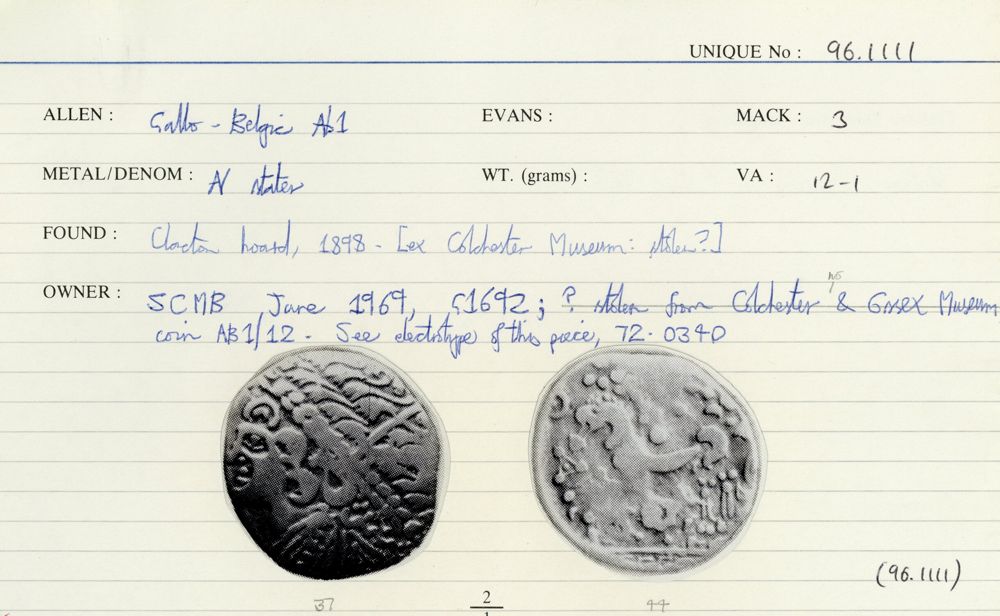 UNIQUE No : 96.1111
ALLEN : Gallo-Belgic Ab1 EVANS : MACK : 3
METAL/DENOM : N stater WT. (grams) : VA : 12-1
FOUND : Clacton hoard, 1898 - [ex Colchester Museum: stolen?]
no
OWNER : SCMB June 1969, G1692; ? stolen from Colchester & Essex Museum
coin AB1/12. See electrotype of this piece, 72.0340
(96.1111)
37 2 44
1